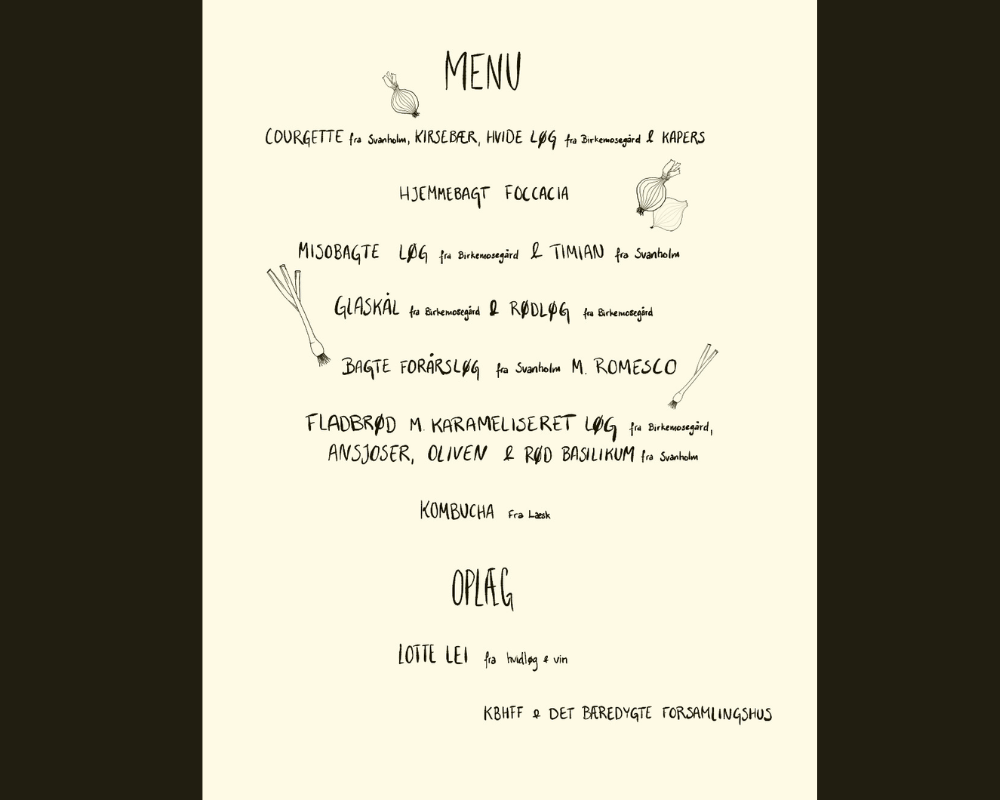 MENU
COURGETTE fra Svanholm, KIRSEBÆR, HVIDE LØG fra Birkemosegård & KAPERS
HJEMMEBAGT FOCCACIA
MISOBAGTE LØG fra Birkemosegård & TIMIAN fra Svanholm
GLASKÅL fra Birkemosegård & RØDLØG fra Birkemosegård
BAGTE FORÅRSLØG fra Svanholm M. ROMESCO
FLADBRØD M. KARAMELISERET LØG fra Birkemosegård,
ANSJOSER, OLIVEN & RØD BASILIKUM fra Svanholm
KOMBUCHA Fra Læsk
OPLÆG
LOTTE LEI fra hvidløg & vin
KBHFF & DET BÆREDYGTE FORSAMLINGSHUS